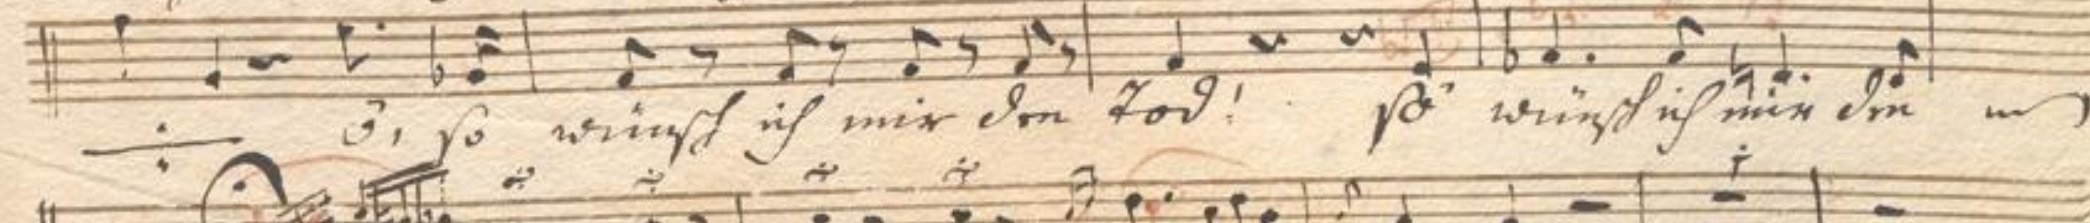 O, so wünsch ich mir den Tod! so wünsch ich mir den